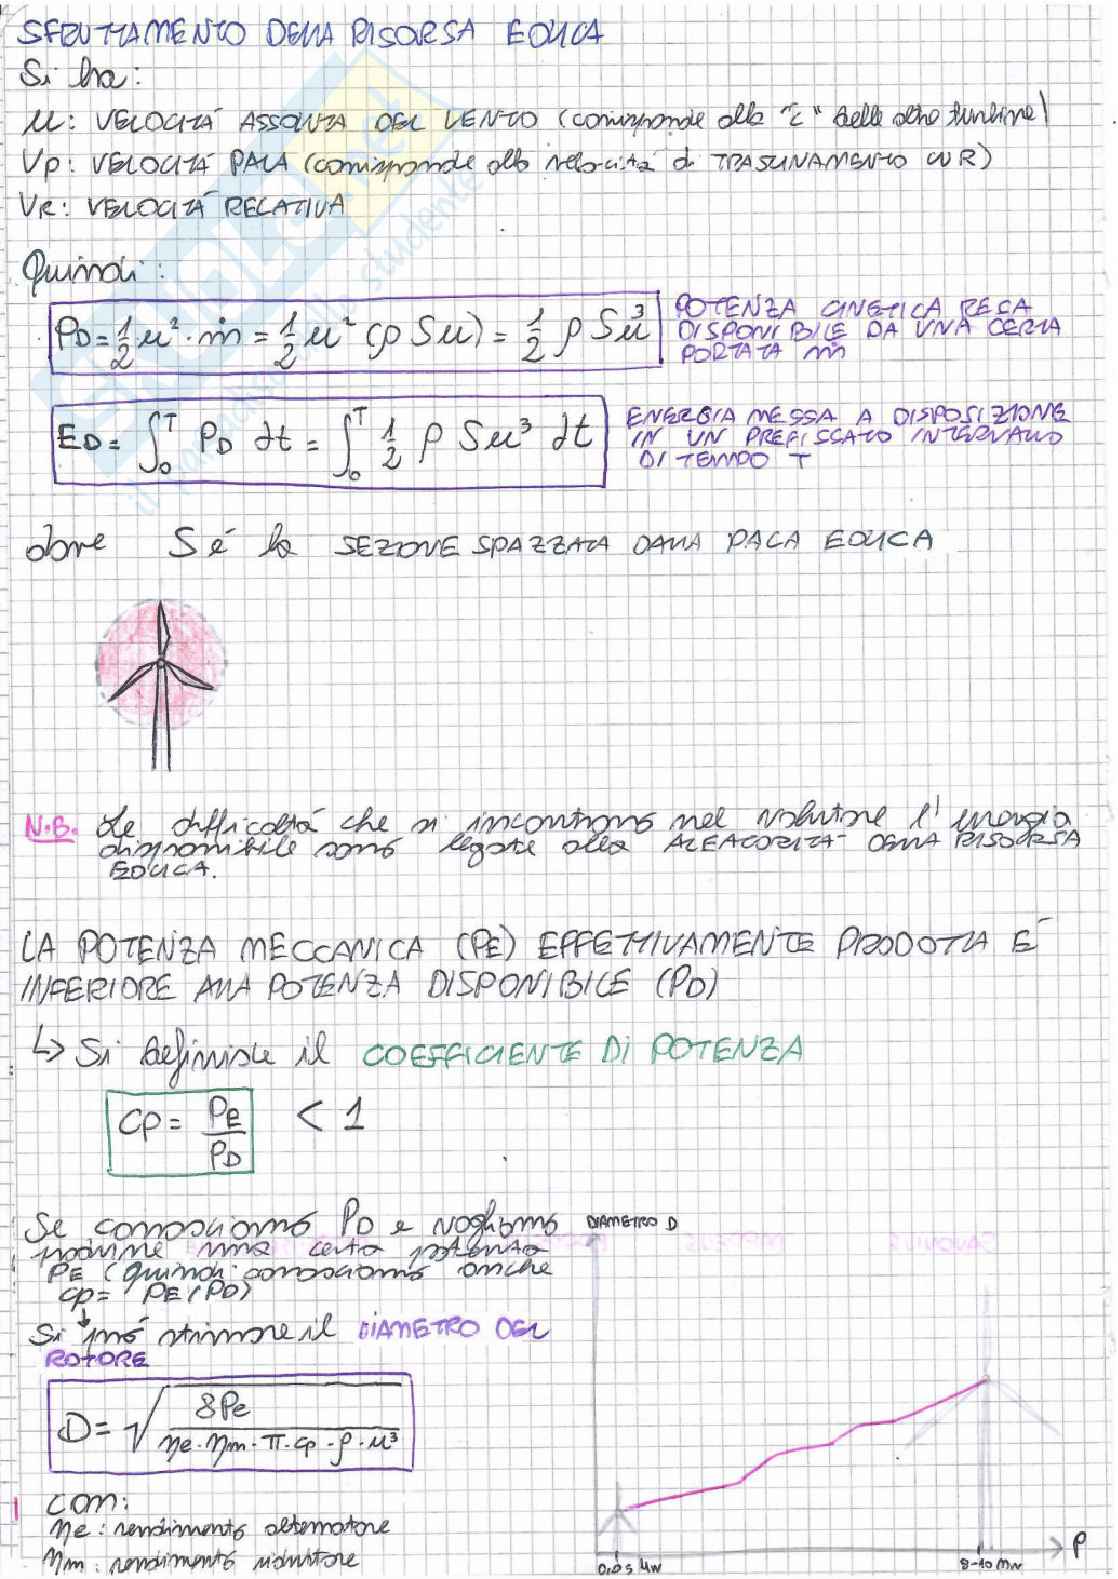 SFRUTTAMENTO DELLA RISORSA EOLICA
Si ha:
u: VELOCITÁ ASSOLUTA DEL VENTO (corrisponde alla "c" delle altre turbine)
Vp: VELOCITÁ PALA (corrisponde alla velocità di TRASCINAMENTO ωR)
VR: VELOCITÁ RELATIVA
Quindi:
PD = 1/2 u² · ṁ = 1/2 u² (ρ S u) = 1/2 ρ S u³
POTENZA CINETICA RESA
DISPONIBILE DA UNA CERTA
PORTATA ṁ
ED = ∫₀ᵀ PD dt = ∫₀ᵀ 1/2 ρ S u³ dt
ENERGIA MESSA A DISPOSIZIONE
IN UN PREFISSATO INTERVALLO
DI TEMPO T
dove S é la SEZIONE SPAZZATA DALLA PALA EOLICA
N.B. Le difficoltá che si incontrano nel valutare l'energia
disponibile sono legate alla ALEATORIETÁ DELLA RISORSA
EOLICA.
LA POTENZA MECCANICA (PE) EFFETTIVAMENTE PRODOTTA É
INFERIORE ALLA POTENZA DISPONIBILE (PD)
↳ Si definisce il COEFFICIENTE DI POTENZA
CP = PE/PD < 1
Se conosciamo PD e vogliamo
produrre una certa potenza
PE (quindi conosciamo anche
cp = PE/PD)
↓
Si può stimare il DIAMETRO DEL
ROTORE
D = √(8Pe / ηe · ηm · π · cp · ρ · u³)
con:
ηe: rendimento alternatore
ηm: rendimento riduttore
DIAMETRO D
P
0.05 MW
8-10 MW
SKUOLA.net
il paradiso dello studente